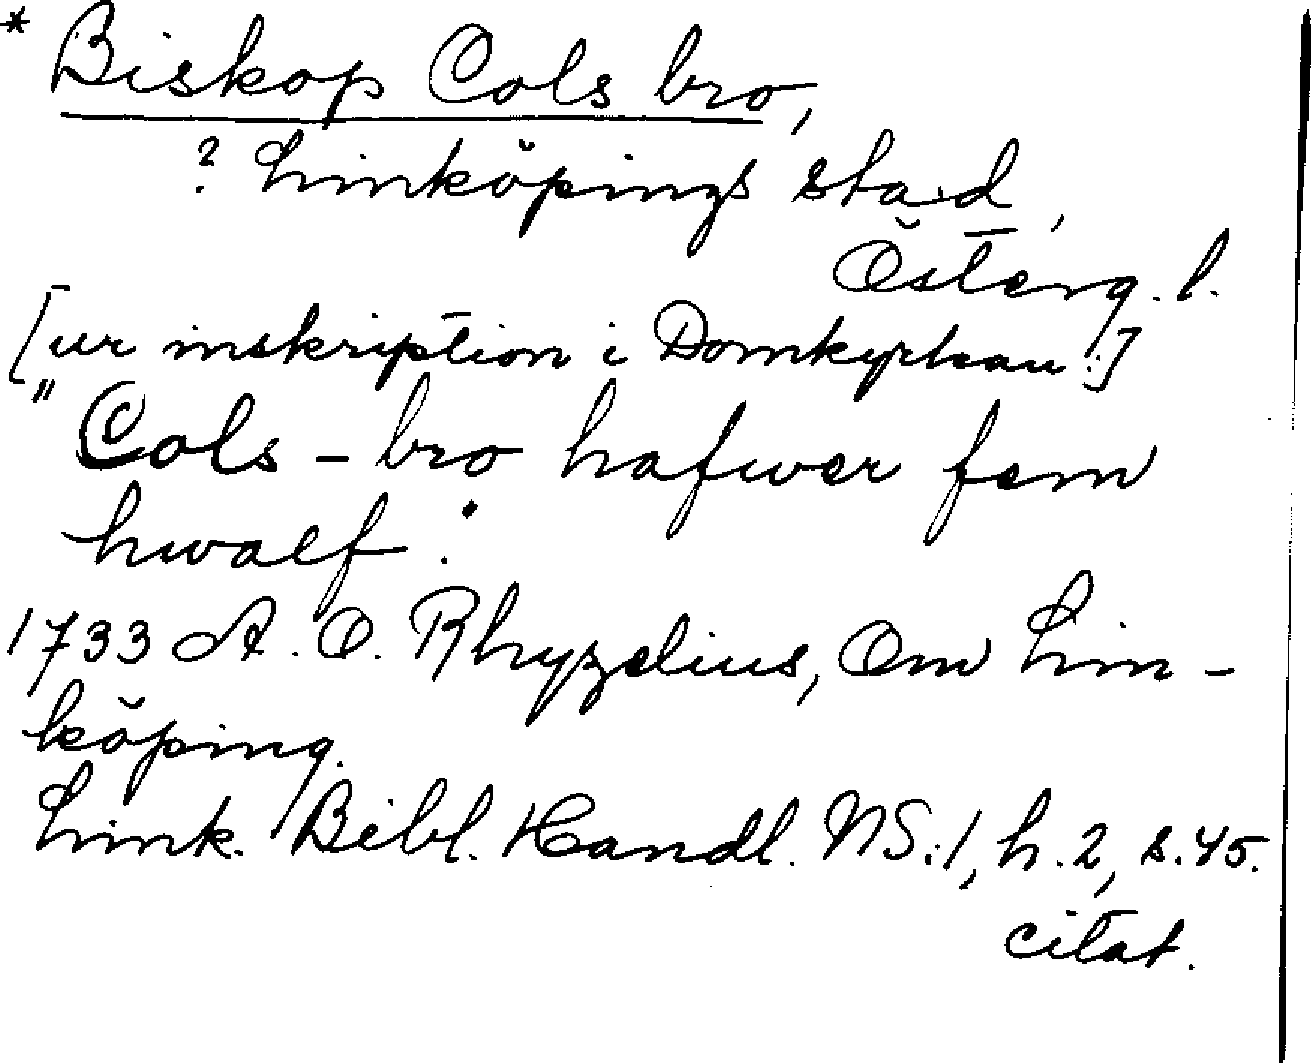 * Biskop Cols bro,
? Linköpings stad,
Österg. l.
[ur inskription i Domkyrkan:]
"Cols-bro hafwer fem
hwalf."
1733 A. O. Rhyzelius, Om Lin-
köping.
Link. Bibl. Handl. NS:1, h.2, s.45.
citat.